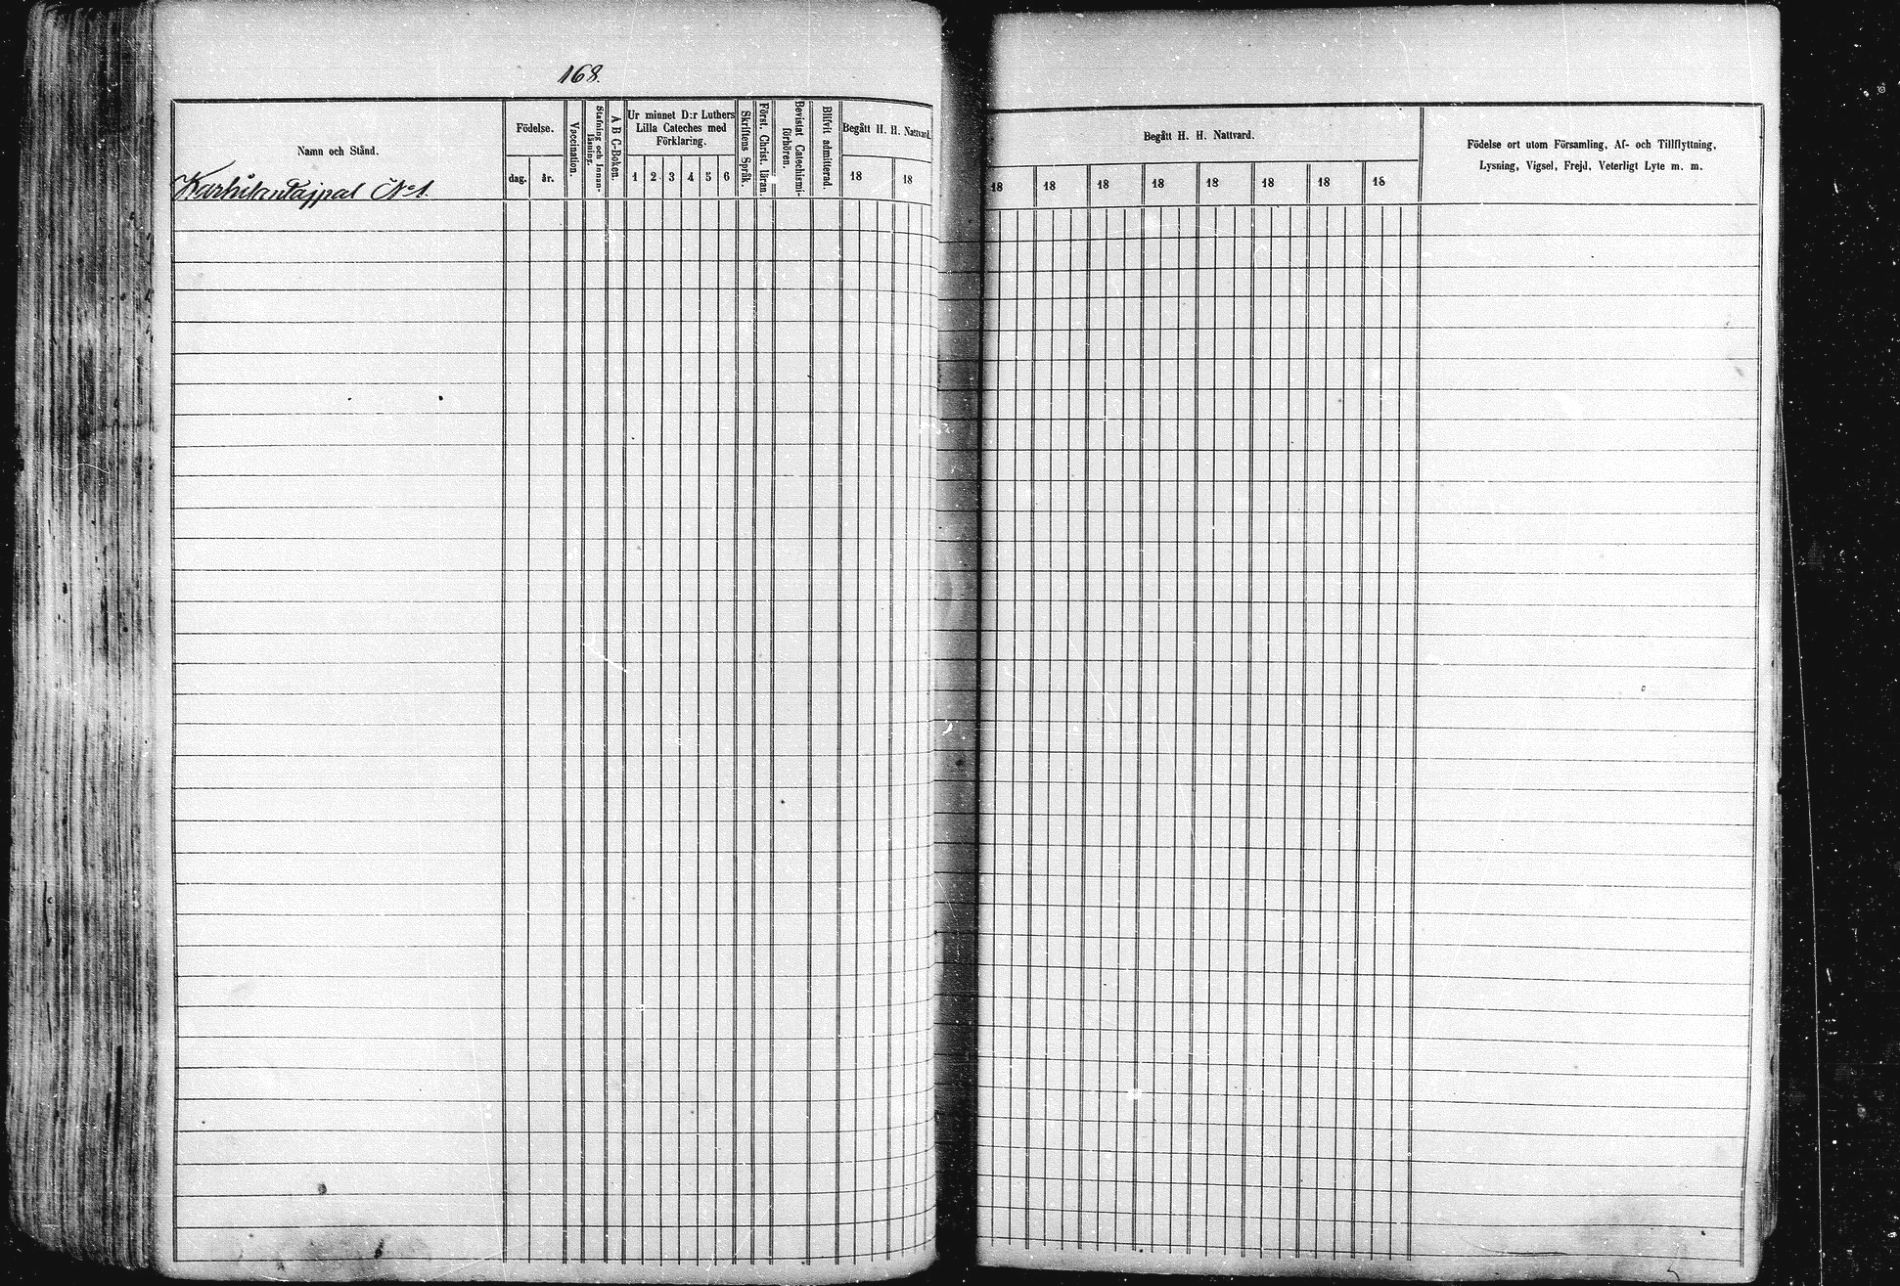 168.
Namn och Stånd.
Födelse.
dag.
år.
Vaccination.
Stafning och Innan-
läsning.
A B C-Boken.
Ur minnet D:r Luthers
Lilla Cateches med
Förklaring.
1 2 3 4 5 6
Skriftens Språk.
Först. Christ. läran.
Bevistat Catechismi-
förhören.
Blifvit admitterad.
Begått H. H. Nattvard.
18 18
Begått H. H. Nattvard.
18 18 18 18 18 18 18 18
Födelse ort utom Församling, Af- och Tillflyttning,
Lysning, Vigsel, Frejd, Veterligt Lyte m. m.
№ 1.